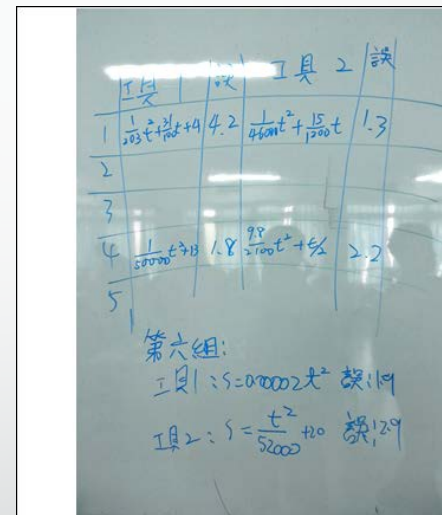 工具1 誤 工具2 誤
1 1/203 t²+31/100 t+4 4.2 1/46000 t²+15/1200 t 1.3
2
3
4 1/50000 t²+13 1.8 9.8/2100 t²+t/2 2.2
5
第六組:
工具1:S=0.00002t² 誤:1.9
工具2:S=t²/52000+20 誤:2.9